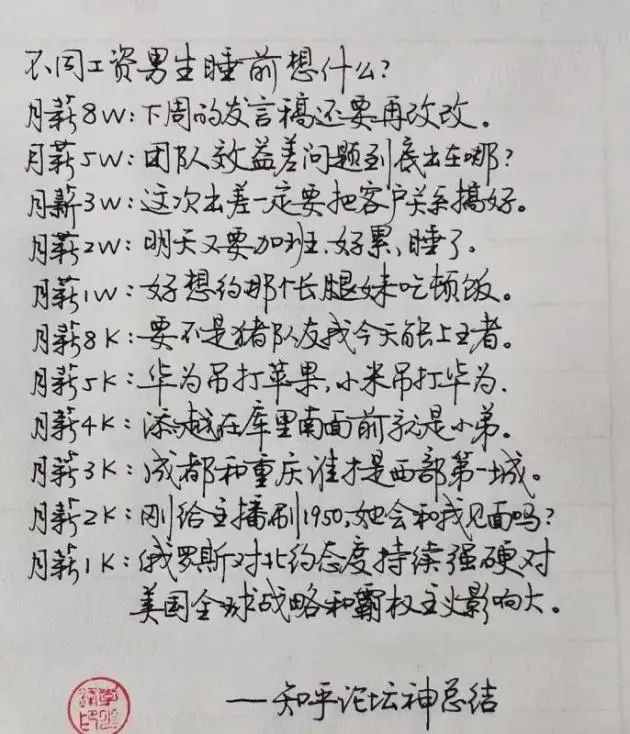 不同工资男生睡前想什么?
月薪8W:下周的发言稿还要再改改。
月薪5W:团队效益差问题到底出在哪?
月薪3W:这次出差一定要把客户关系搞好。
月薪2W:明天又要加班.好累,睡了.
月薪1W:好想约那个长腿妹吃顿饭。
月薪8K:要不是猪队友我今天能上王者。
月薪5K:华为吊打苹果,小米吊打华为.
月薪4K:添越在库里南面前就是小弟。
月薪3K:成都和重庆谁才是西部第一城。
月薪2K:刚给主播刷1950,她会和我见面吗?
月薪1K:俄罗斯对北约态度持续强硬对
美国全球战略和霸权主义影响大。
——知乎论坛神总结